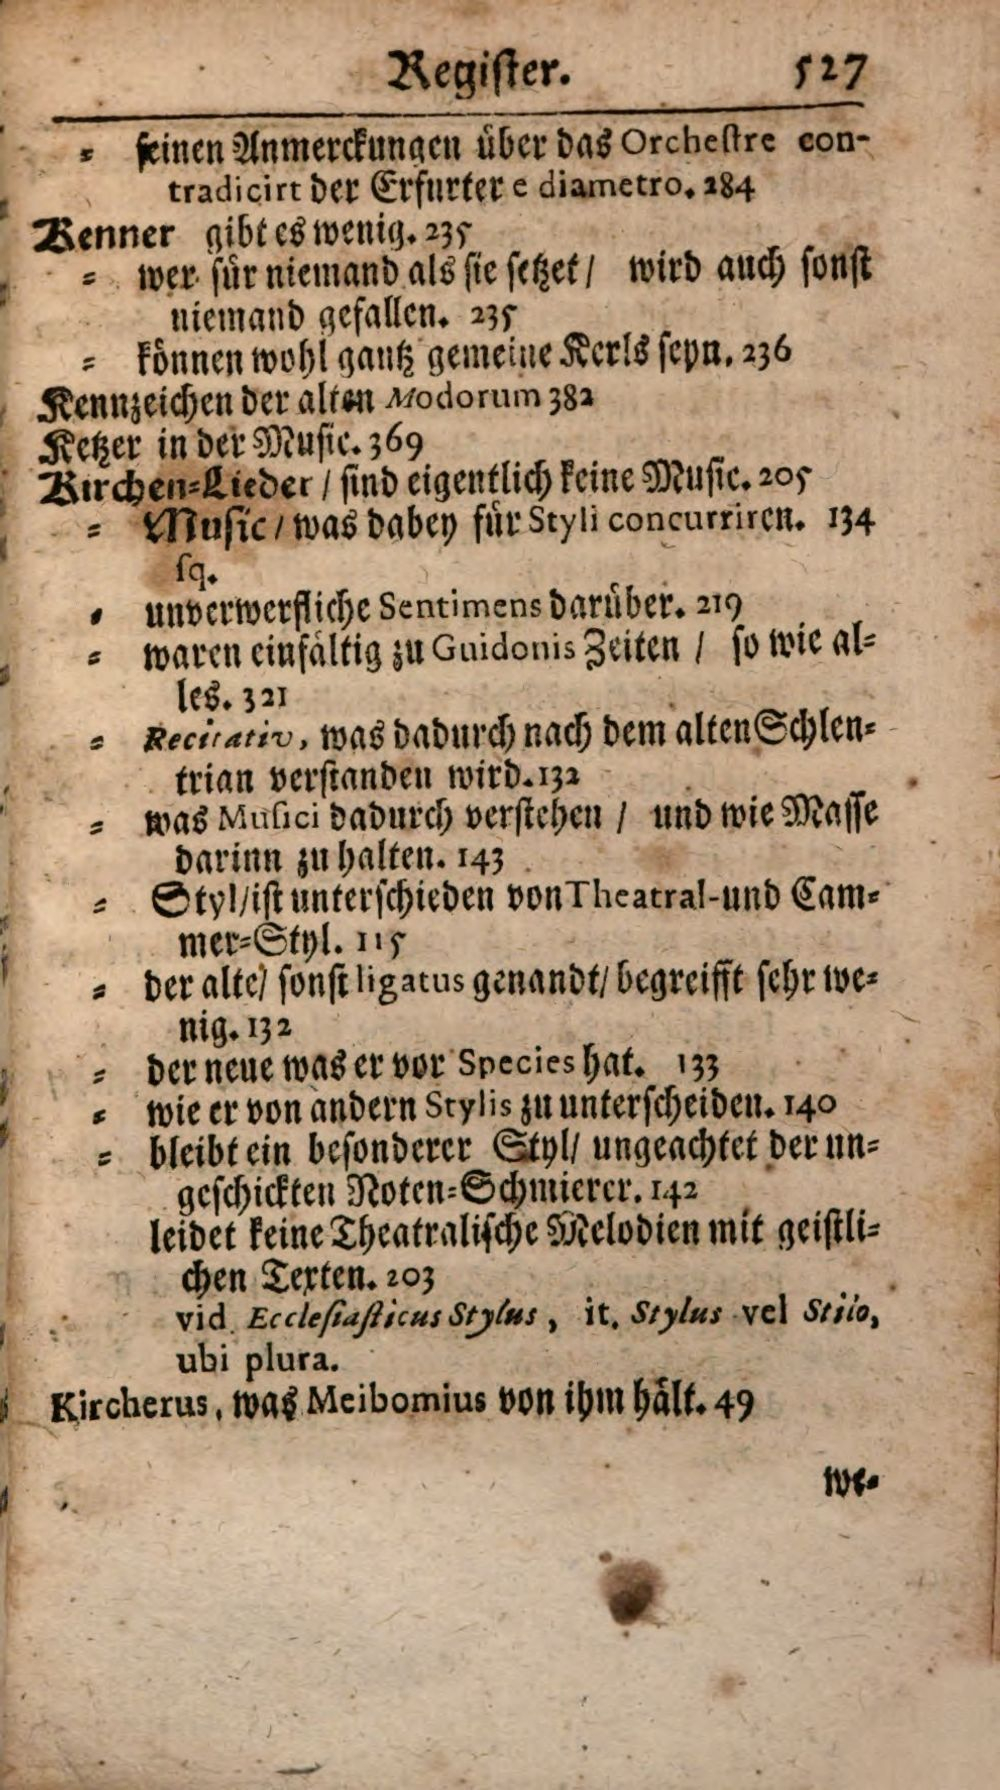 Register. 527
= seinen Anmerckungen über das Orchestre con-
tradicirt der Erfurter e diametro. 284
Kenner gibt es wenig. 235
= wer für niemand als sie setzet / wird auch sonst
niemand gefallen. 235
= können wohl gantz gemeine Kerls seyn. 236
Kennzeichen der alten Modorum 382
Ketzer in der Music. 369
Kirchen=Lieder / sind eigentlich keine Music. 205
= Music / was dabey für Styli concurriren. 134
sq.
= unverwerfliche Sentimens darüber. 219
= waren einfältig zu Guidonis Zeiten / so wie al=
les. 321
= Recitativ, was dadurch nach dem alten Schlen=
trian verstanden wird. 132
= was Musici dadurch verstehen / und wie Masse
darinn zu halten. 143
= Styl / ist unterschieden von Theatral-und Cam=
mer=Styl. 115
= der alte / sonst ligatus genandt / begreifft sehr we=
nig. 132
= der neue was er vor Species hat. 133
= wie er von andern Stylis zu unterscheiden. 140
= bleibt ein besonderer Styl / ungeachtet der un=
geschickten Noten=Schmierer. 142
leidet keine Theatralische Melodien mit geistli=
chen Texten. 203
vid. Ecclesiasticus Stylus, it. Stylus vel Stilo,
ubi plura.
Kircherus, was Meibomius von ihm hält. 49
we=